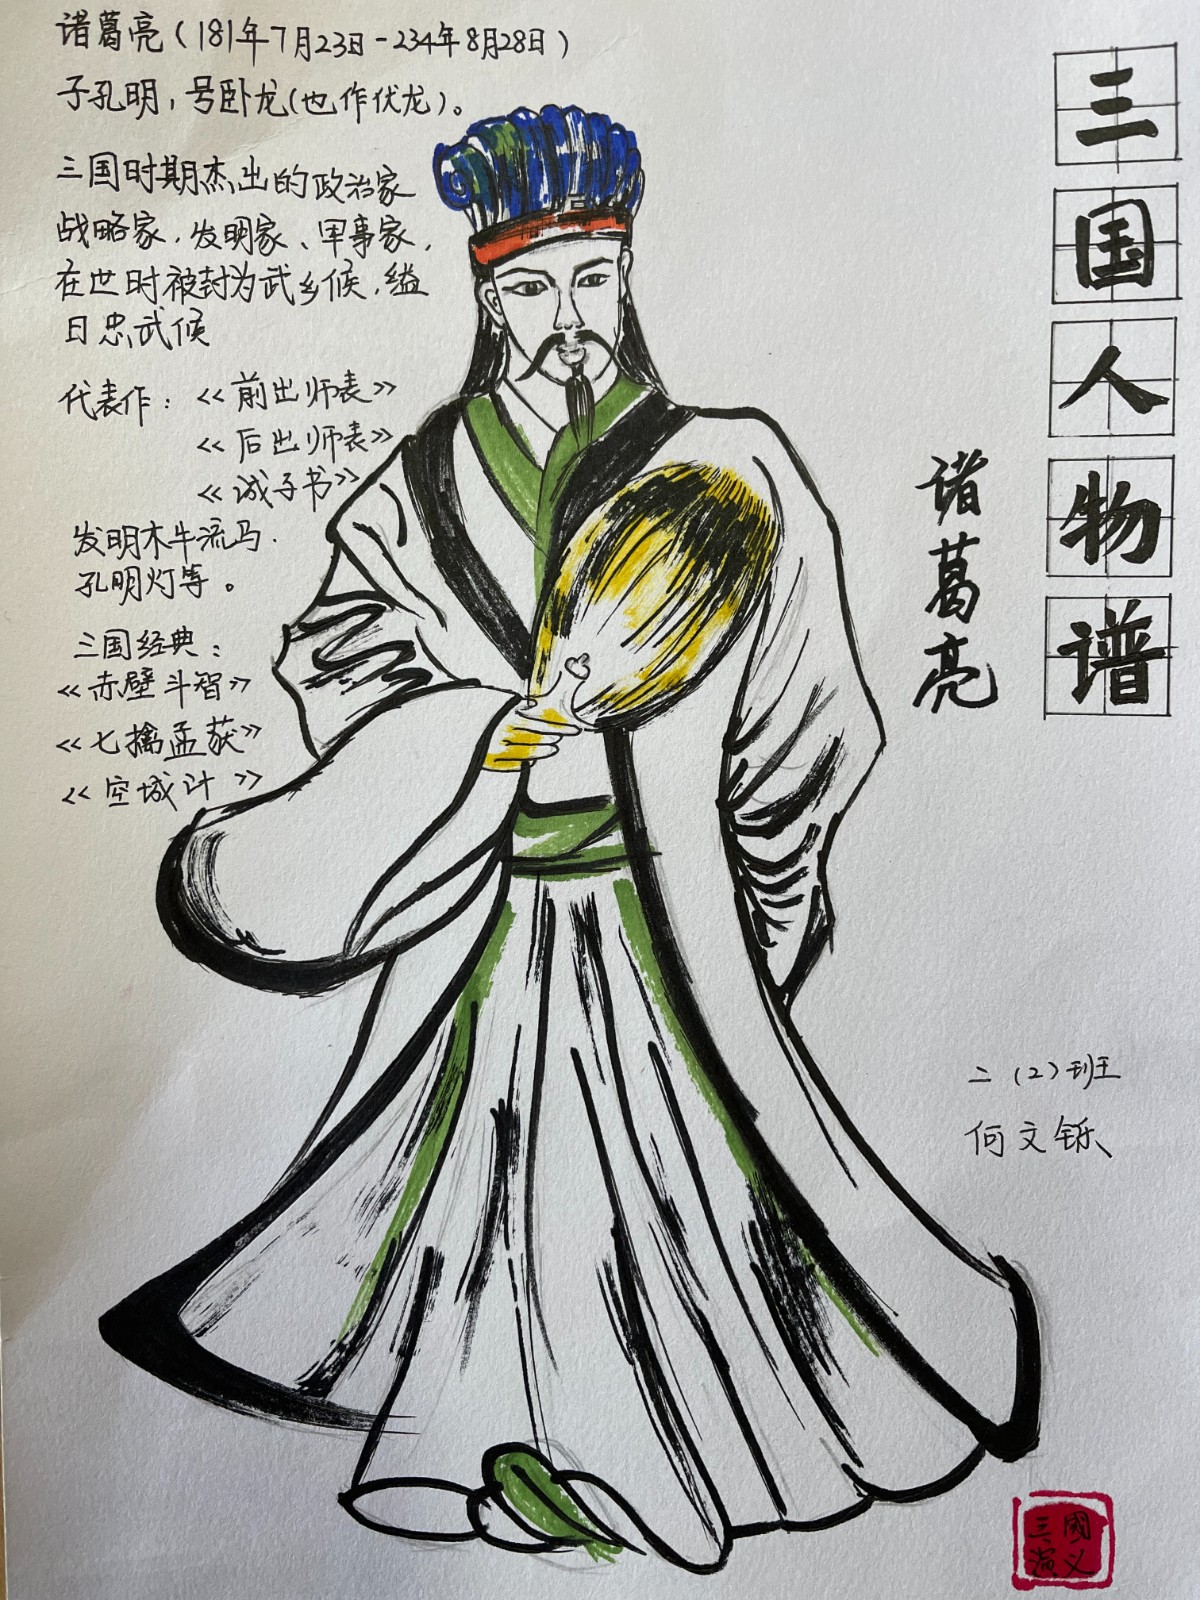 诸葛亮(181年7月23日-234年8月28日)
子孔明，号卧龙(也作伏龙)。
三国时期杰出的政治家
战略家、发明家、军事家，
在世时被封为武乡候，缢
日忠武候
代表作：《前出师表》
《后出师表》
《诫子书》
发明木牛流马.
孔明灯等。
三国经典：
《赤壁斗智》
《七擒孟获》
《空城计》
三国人物谱
诸葛亮
二(2)班
何文铄
三國
演义